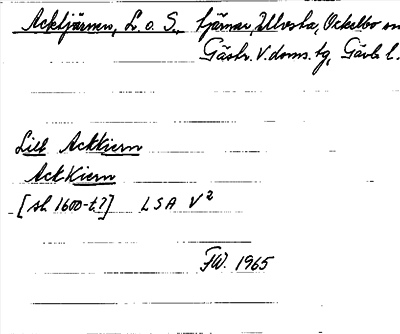 Acktjärnen, L. o. S. tjärnar, Ulvsta, Ockelbo sn
Gästr. V. doms. tg, Gävle l.
Lill AckKiern
AckKiern
[sl 1600-t?] LSA V²
FW. 1965